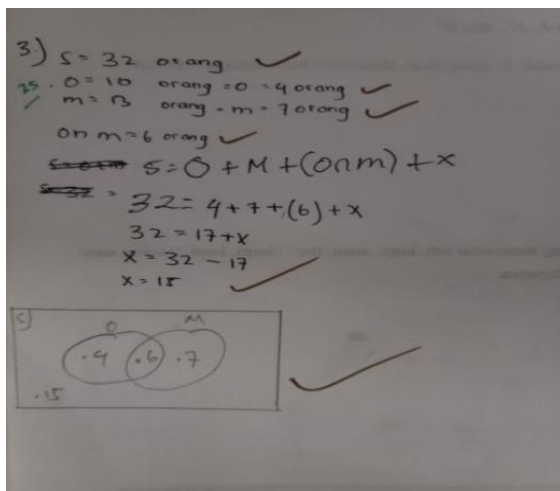 3.) S = 32 orang
25 . O = 10 orang = O = 4 orang
M = 13 orang - M = 7 orang
O∩M = 6 orang
S = O + M + (O∩M) + X
32 = 4 + 7 + (6) + X
32 = 17 + X
X = 32 - 17
X = 15
S O M
.4 .6 .7
.15